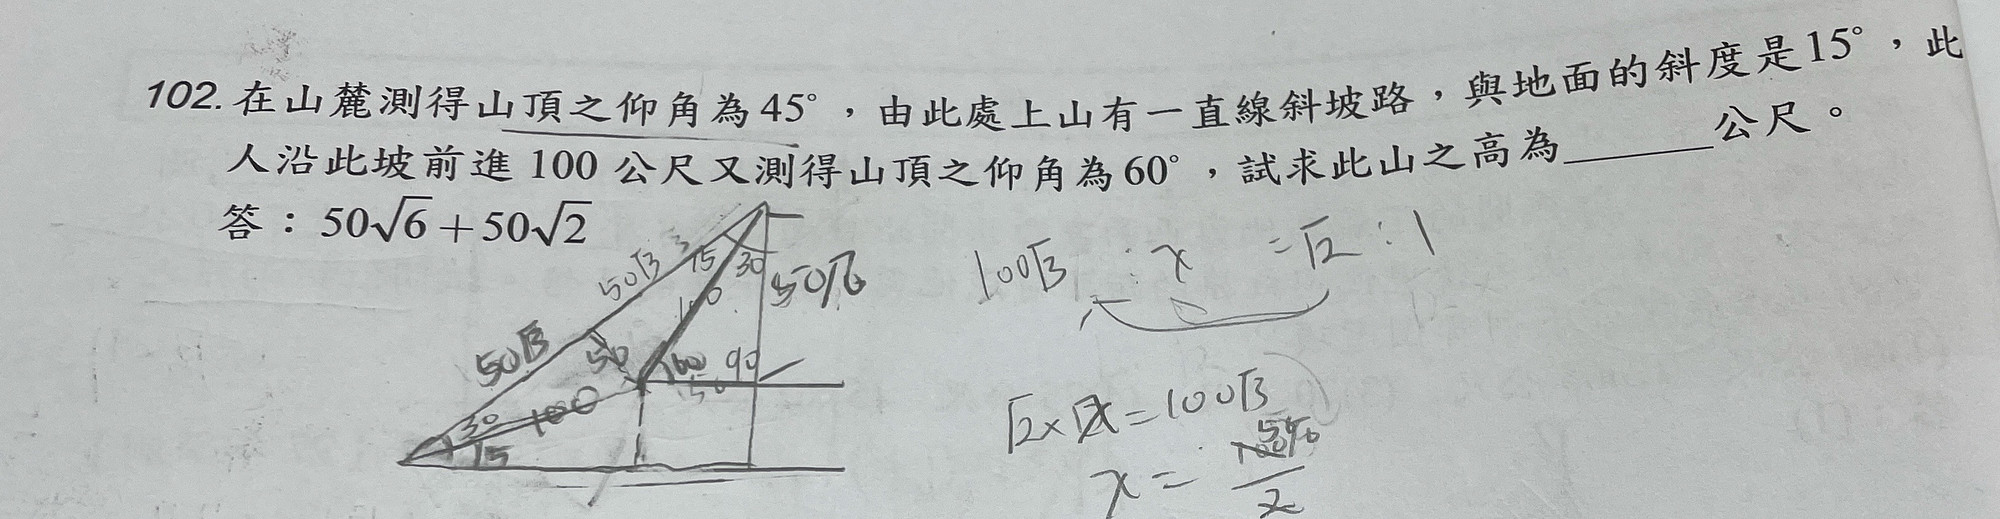 102. 在山麓測得山頂之仰角為45°,由此處上山有一直線斜坡路,與地面的斜度是15°,此
人沿此坡前進 100 公尺又測得山頂之仰角為60°,試求此山之高為______公尺。
答:50√6+50√2
50√3
15
30
50√6
100
50√3
50
60
90
50
30
100
15
100√3 : x = √2 : 1
√2 x = 100√3
x =
2